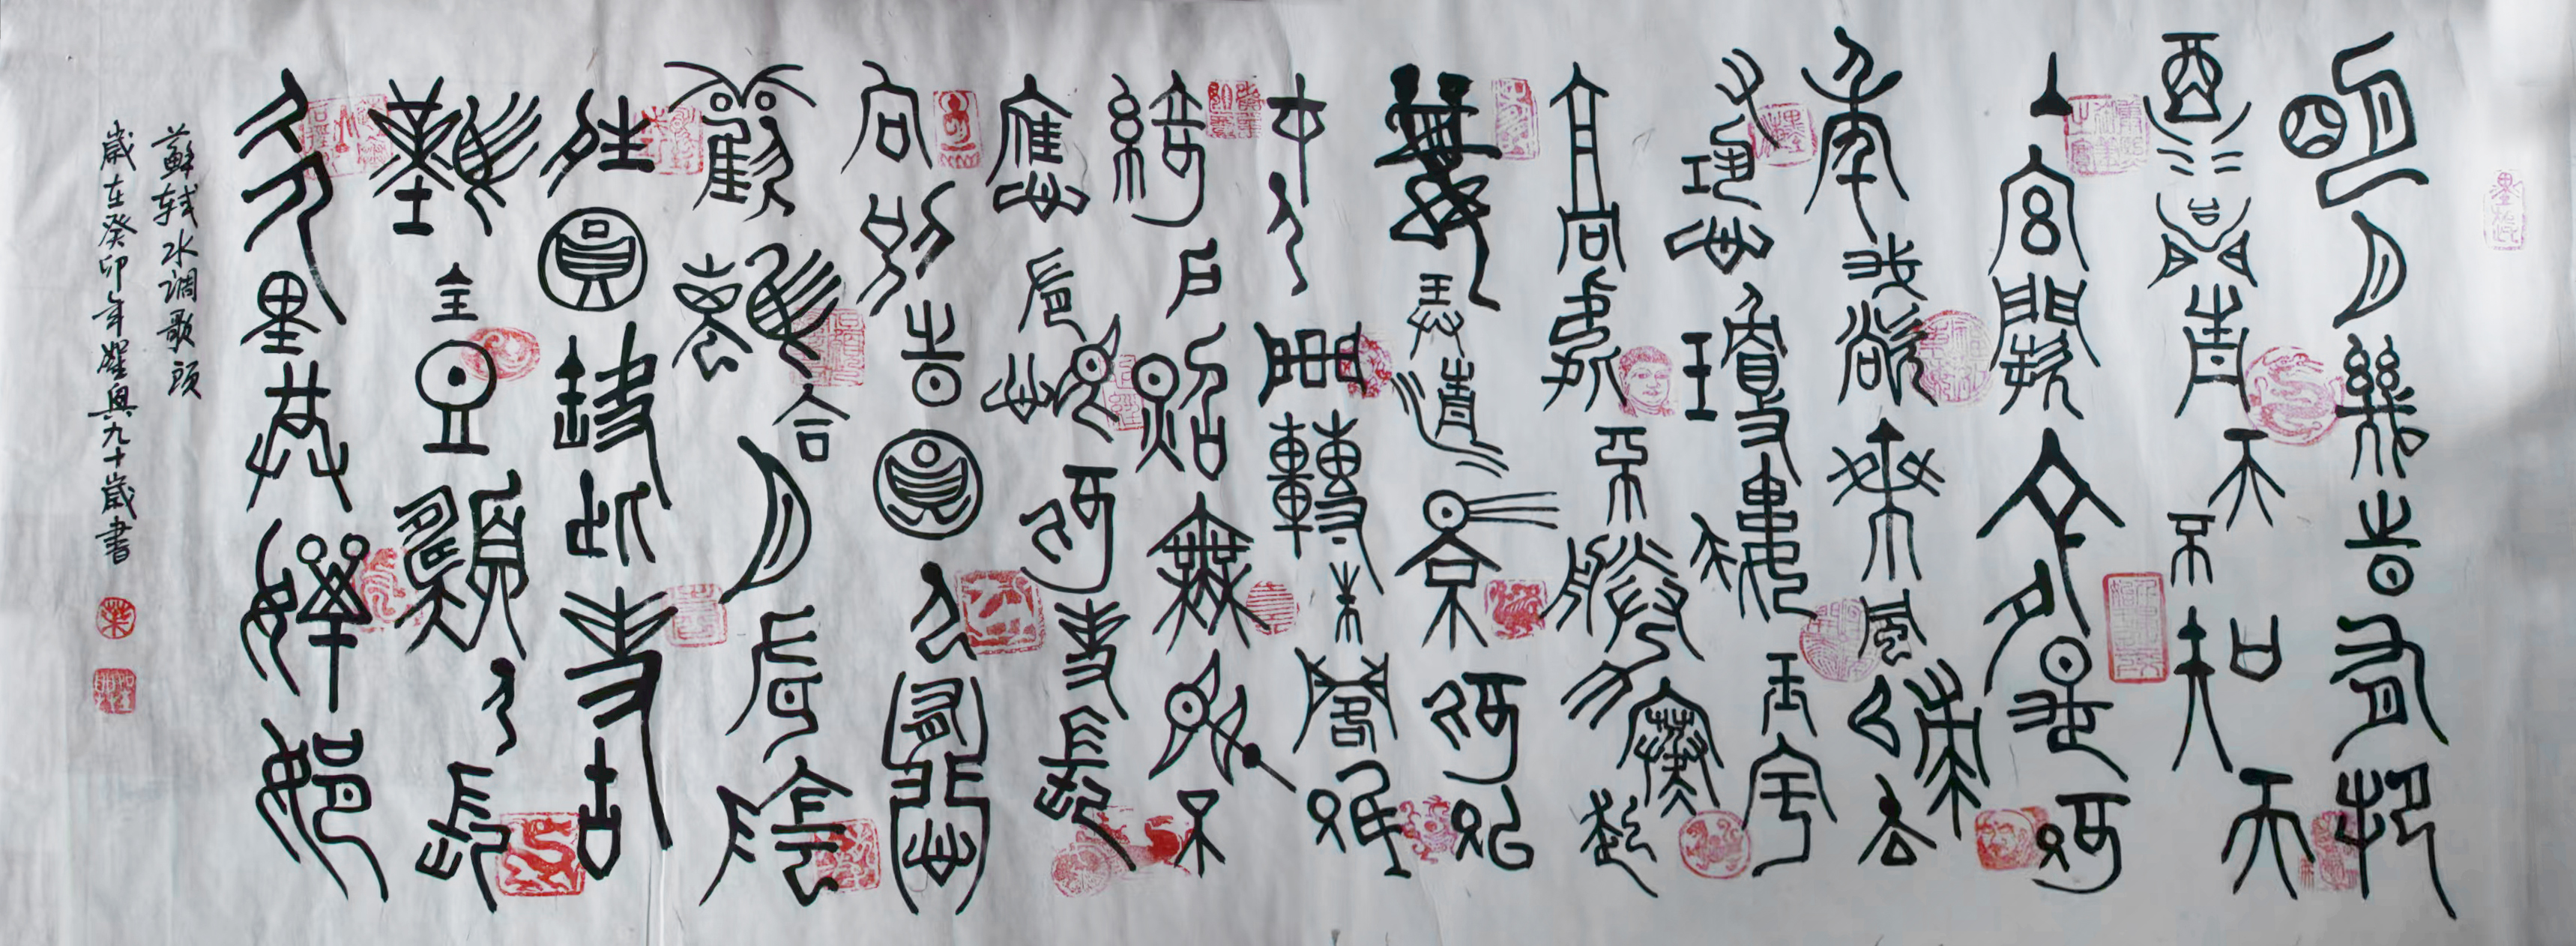 明月幾時有把
酒問青天不知天
上宮闕今夕是何
年我欲乘風歸去
又恐瓊樓玉宇
高處不勝寒起
舞弄清影何似
在人間轉朱閣低
綺戶照無眠不
應有恨何事長
向別時圓人有悲
歡離合月有陰
晴圓缺此事古
難全但願人長
久千里共嬋娟
蘇轼水调歌頭
歲在癸卯年耀興九十歲書